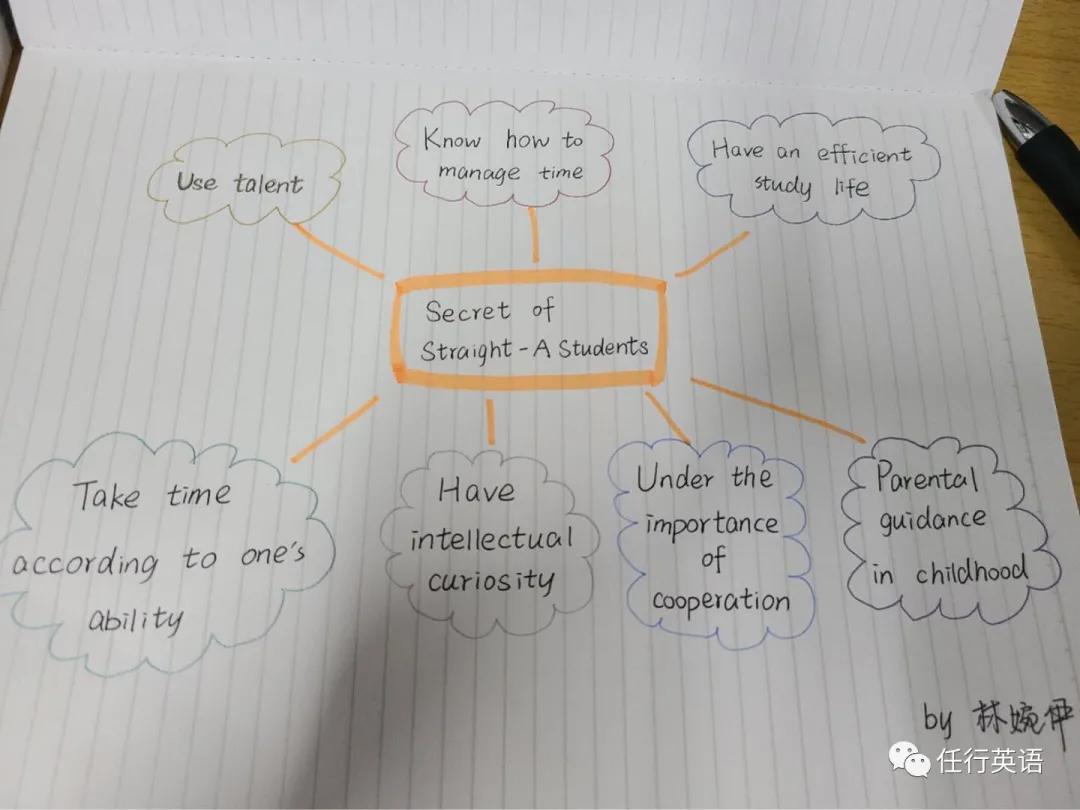 Use talent
Know how to
manage time
Have an efficient
study life
Secret of
Straight-A Students
Take time
according to one's
ability
Have
intellectual
curiosity
Under the
importance
of
cooperation
Parental
guidance
in childhood
by 林婉伊
任行英语